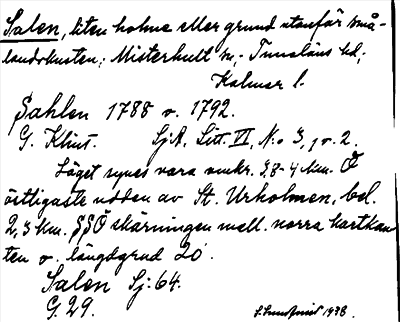 Salen, liten holme eller grund utanför små-
landskusten; Misterhult sn, Tunaläns hd,
Kalmar l.
Sahlen 1788 o. 1792.
G. Klint. SjA, Litt. VI, No 3, 1 o. 2.
Läget synes vara omkr. 3,8-4 km. Ö
östligaste udden av St. Urholmen, bel.
2,3 km. SSÖ skärningen mell. norra kartkan
ten o. längdgrad 20'.
Salen Sj: 64.
G. 29.
S. Sundquist 1938.